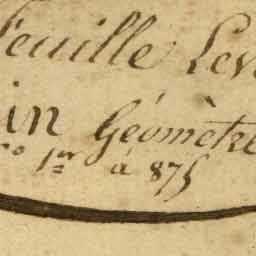 Feuille Lev
in Géomètre
no 1er à 875